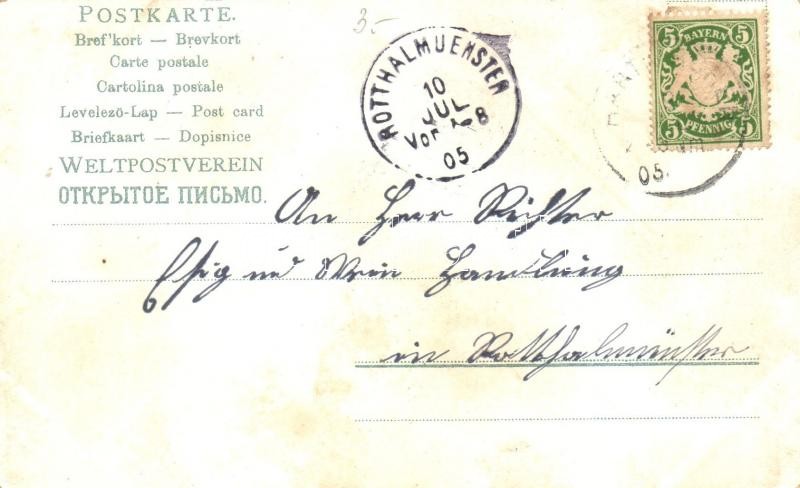 POSTKARTE.
Bref'kort — Brevkort
Carte postale
Cartolina postale
Levelezö-Lap — Post card
Briefkaart — Dopisnice
WELTPOSTVEREIN
ОТКРЫТОЕ ПИСЬМО.
3.-
ROTTHALMUENSTER
10
JUL
Vor 8
05
BAYERN
5 5
5 5
PFENNIG
05.
An Herr Richter
Esig und Wein Handlung
in Rotthalmünster